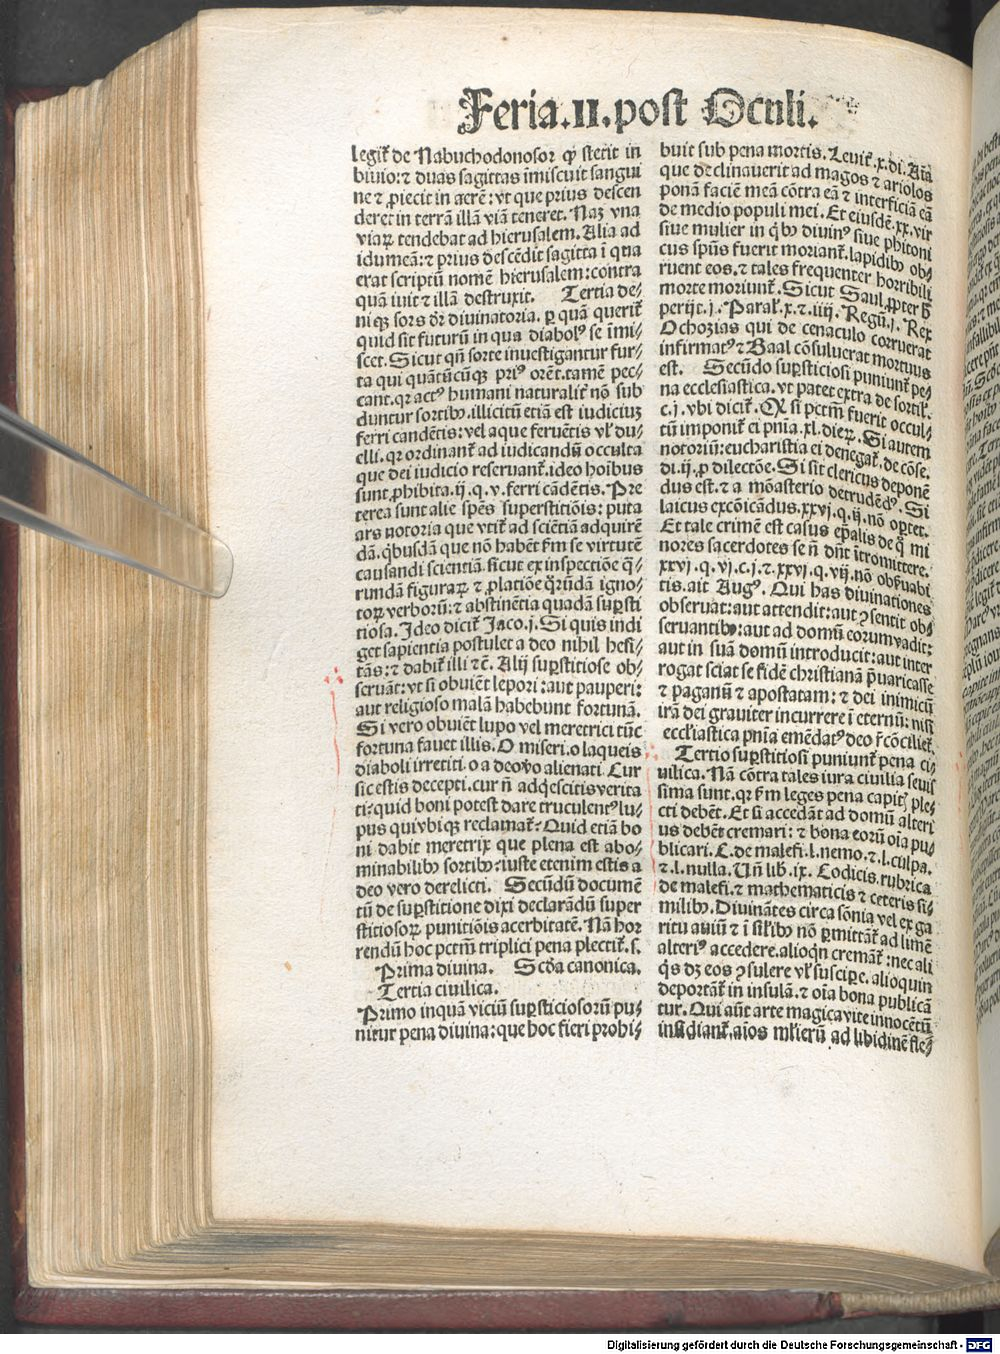 Feria.II.post Oculi.
legit᷑ de Nabuchodonosor ꝙ stetit in
biuio: ⁊ duas sagittas īmiscuit sangui
ne ⁊ ꝓiecit in aerē: vt que prius descen
deret in terrā illā viā teneret. Naꝫ vna
viaꝝ tendebat ad hierusalem. Alia ad
idumeā: ⁊ prius descēdit sagitta ī qua
erat scriptū nomē hierusalem: contra
quā iuit ⁊ illā destruxit. Tertia de⸗
niqꝫ sors dr̄ diuinatoria. ꝑ quā querit᷑
quid sit futurū in qua diabolꝰ se īmi⸗
scet. Sicut qn̄ sorte inuestigantur fur⸗
ta qui quātūcūqꝫ priꝰ orēt. tamē pec⸗
cant. qꝛ actꝰ humani naturalit᷑ nō sub
duntur sortibꝰ. illicitū etiā est iudiciuꝫ
ferri candētis: vel aque feruētis vl̓ du⸗
elli. qꝛ ordinant᷑ ad iudicandū occulta
que dei iudicio reseruant᷑. ideo hoibus
sunt ꝓhibita. ij. q. v. ferri cādētis. Pre
terea sunt alie spēs superstitiōis: puta
ars notoria que vtit᷑ ad sciētiā adquirē
dā. qͥbusdā que nō habēt ẜm se virtutē
causandi scientiā. sicut ex inspectiōe q̄⸗
rundā figuraꝝ ⁊ ꝓlatiōe q̄rūdā igno⸗
toꝝ verborū: ⁊ abstinētia quadā suꝑsti
tiosa. Ideo dicit᷑ Jaco. j. Si quis indi
get sapientia postulet a deo nihil hesi⸗
tās: ⁊ dabit᷑ illi ⁊ē. Alij suꝑstitiose ob⸗
seruāt: vt si obuiēt lepori: aut pauperi:
aut religioso malā habebunt fortunā.
Si vero obuiēt lupo vel meretrici tūc
fortuna fauet illis. O miseri. o laqueis
diaboli irretiti. o a deo vo alienati. Cur
sic estis decepti. cur n̄ adq̄escitis verita
ti: quid boni potest dare truculentꝰ lu⸗
pus qui vbiqꝫ reclamat᷑: Quid etiā bo
ni dabit meretrix que plena est abo⸗
minabilibꝰ sortibꝰ: iuste etenim estis a
deo vero derelicti. Secūdū documē
tū de suꝑstitione dixi declarādū super
stitiosoꝝ punitiōis acerbitatē. Nā hor
rendū hoc pctm̄ triplici pena plectit᷑. s.
Prima diuina. Scd̄a canonica.
Tertia ciuilica.
Primo inquā viciū suꝑsticiosorū pu⸗
nitur pena diuina: que hoc fieri prohi⸗
buit sub pena mortis. Leuit᷑. x. di. Aīa
que declinauerit ad magos ⁊ ariolos
ponā faciē meā cōtra eā ⁊ interficiā eā
de medio populi mei. Et eiusdē. xx. vir
siue mulier in qͥbꝰ diuinꝰ siue phitoni
cus spūs fuerit moriant᷑. lapidibꝰ ob⸗
ruent eos. ⁊ tales frequenter horribili
morte moriunt᷑. Sicut Saul ꝓpter h̄
perijt. j. Paral᷑. x. ⁊. iiij. Regū. j. Rex
Ochozias qui de cenaculo corruerat
infirmatꝰ ⁊ Baal cōsuluerat mortuus
est. Secūdo suꝑsticiosi puniunt᷑ pe⸗
na ecclesiastica. vt patet extra de sortil᷑.
c. j. vbi dicit᷑. Qꝙ si pctm̄ fuerit occul⸗
tū imponit᷑ ei pn̄ia. xl. dieꝝ. Si autem
notoriū: eucharistia ei denegat᷑. de cōse.
di. ij. ꝓ dilectōe. Si sit clericus deponē
dus est. ⁊ a mōasterio detrudēdꝰ. Si
laicus excōicādus. xxvj. q. ij. nō oꝑtet.
Et tale crimē est casus ep̄alis de q̄ mi
nores sacerdotes se n̄ dn̄t ītromittere.
xxvj. q. vj. c. j. ⁊ xxvj. q. vij. nō obẜuabi
tis. ait Augꝰ. Qui has diuinationes
obseruat: aut attendit: aut ꝯsentit obẜ
seruantibꝰ: aut ad domū eorum vadit:
aut in suā domū introducit: aut inter
rogat sciat se fidē christianā p̄uaricasse
⁊ paganū ⁊ apostatam: ⁊ dei inimicū
irā dei grauiter incurrere ī eternū: nisi
eccl̓iastica pn̄ia emēdatꝰ deo r̄cōciliet᷑.
Tertio suꝑstitiosi puniunt᷑ pena ci⸗
uilica. Nā cōtra tales iura ciuilia seuis
sima sunt. qꝛ ẜm leges pena capitꝭ ple⸗
cti debēt. Et si accedāt ad domū alteri
us debēt cremari: ⁊ bona eorū oīa pu⸗
blicari. C. de malefi. l. nemo. ⁊. l. culpa.
⁊. l. nulla. Vn̄ lib. ix. Codicis. rubrica
de malefi. ⁊ mathematicis ⁊ ceteris si⸗
milibꝰ. Diuinātes circa sōnia vel ex ga
ritu auiū ⁊ ī sil᷑ibꝰ nō ꝑmittāt᷑ ad limē
alteriꝰ accedere. alioqn̄ cremāt᷑: nec ali
q̄s dꝫ eos ꝯsulere vl̓ suscipe. alioquin
deportāt᷑ in insulā. ⁊ oīa bona publicā
tur. Qui aūt arte magica vite innocētū
insidiant᷑. aīos mlierū ad libidinē fle⸗
Digitalisierung gefördert durch die Deutsche Forschungsgemeinschaft - DFG